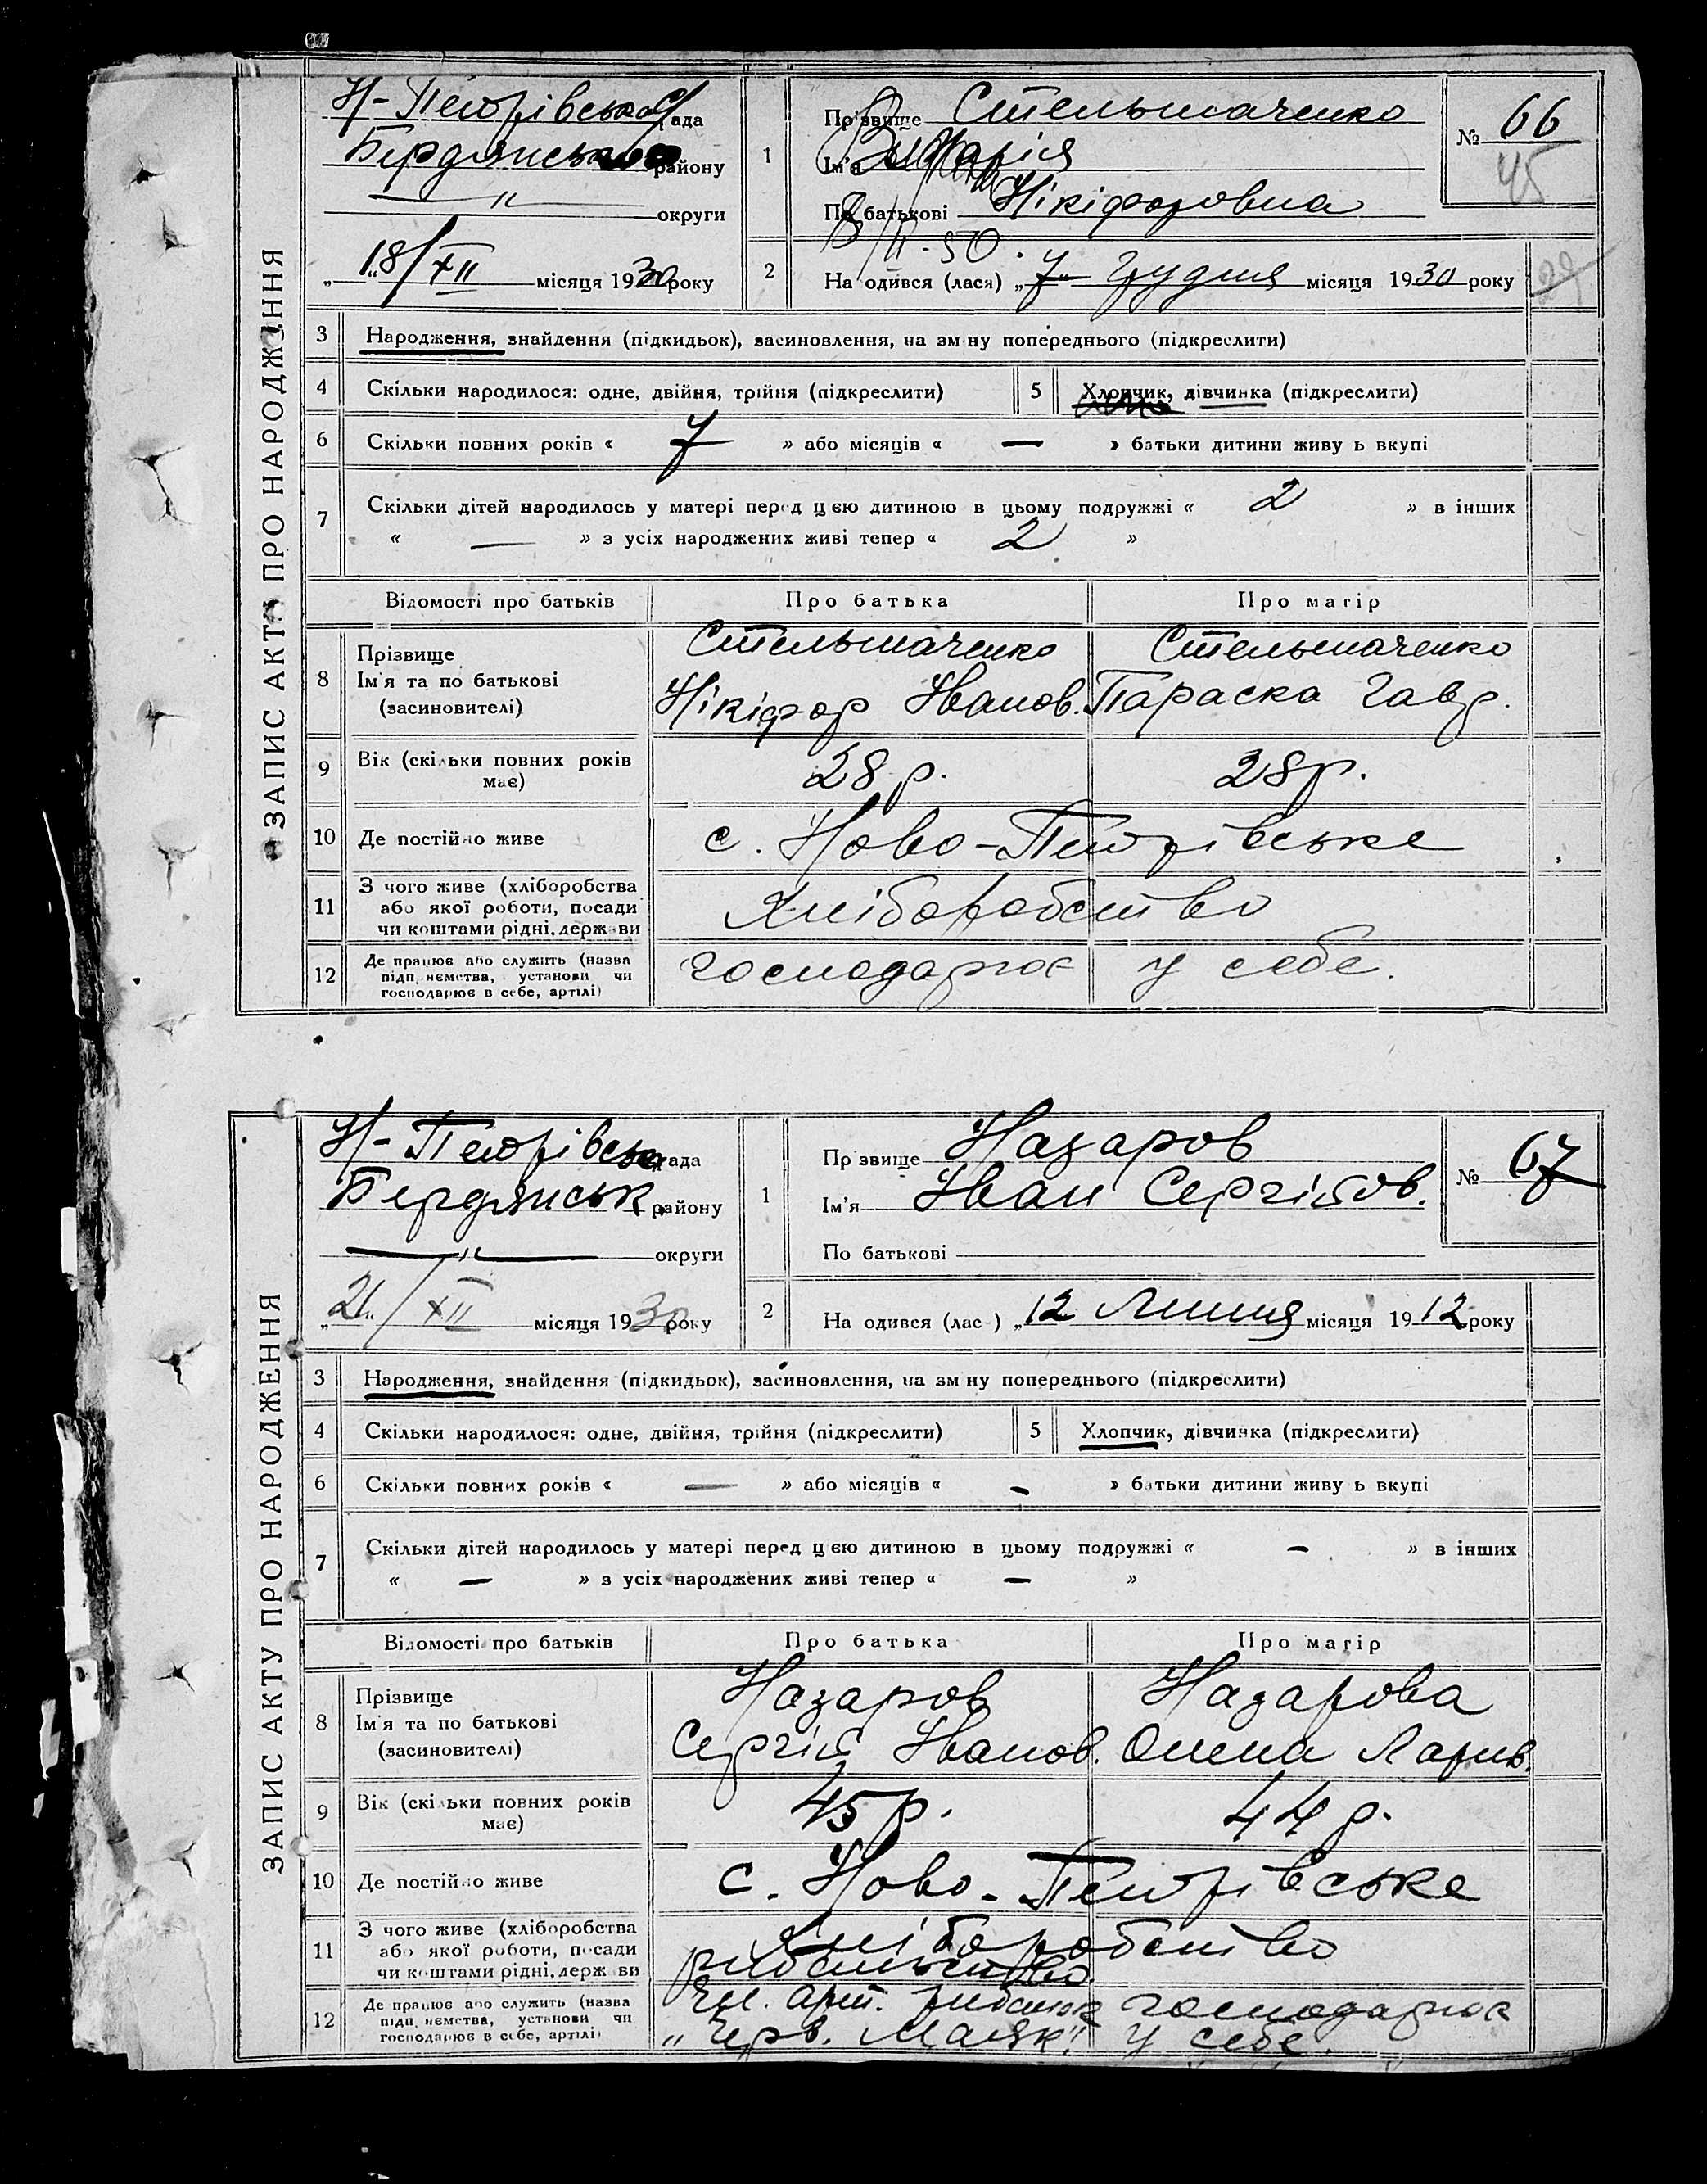 ЗАПИС АКТУ ПРО НАРОДЖЕННЯ
Н-Петрівська рада
Бердянського району
—"— округи
„18/XII місяця 1930 року
1
Прізвище Стельмаченко
Ім'я Марія
По батькові Нікіфоровна
8/II-50.
№ 66
45
2
На одився (лася) „7" грудня місяця 1930 року
29
3 Народження, знайдення (підкидьок), засиновлення, на зм ну попереднього (підкреслити)
4 Скільки народилося: одне, двійня, трійня (підкреслити)
5 Хлопчик, дівчинка (підкреслити)
6 Скільки повних років « 7 » або місяців « — » батьки дитини живу ь вкупі
7 Скільки дітей народилось у матері перед цією дитиною в цьому подружжі « 2 » в інших
« — » з усіх народжених живі тепер « 2 »
Відомості про батьків Про батька Про матір
8 Прізвище Ім'я та по батькові (засиновителі)
Стельмаченко Стельмаченко
Нікіфор Іванов. Параска Гавр.
9 Вік (скільки повних років має) 28 р. 28 р.
10 Де постійно живе с. Ново-Петрівське
11 З чого живе (хліборобства або якої роботи, посади чи коштами рідні, держави
Хліборобство
12 Де працює або служить (назва підп иємства, установи чи господарює в себе, артілі)
господарює у себе.
ЗАПИС АКТУ ПРО НАРОДЖЕННЯ
Н-Петрівськ рада
Бердянськ. району
—"— округи
„21"/XII місяця 1930 року
1
Пр звище Назаров
Ім'я Іван Сергійов.
По батькові
№ 67
2
На одився (лас ) „12 Липня місяця 1912 року
3 Народження, знайдення (підкидьок), засиновлення, на зм ну попереднього (підкреслити)
4 Скільки народилося: одне, двійня, трійня (підкреслити)
5 Хлопчик, дівчинка (підкреслити)
6 Скільки повних років « — » або місяців « - » батьки дитини живу ь вкупі
7 Скільки дітей народилось у матері перед цією дитиною в цьому подружжі « - » в інших
« — » з усіх народжених живі тепер « — »
Відомості про батьків Про батька Про матір
8 Прізвище Ім'я та по батькові (засиновителі)
Назаров Назарова
Сергій Іванов. Олена Ларив.
9 Вік (скільки повних років має) 45 р. 44 р.
10 Де постійно живе с. Ново-Петрівське
11 З чого живе (хліборобства або якої роботи, посади чи коштами рідні, держави
Хліборобство
рибальство
12 Де працює або служить (назва підп иємства, установи чи господарює в себе, артілі)
Чл. арт. рибалок господарює
„Черв. Маяк" у себе.